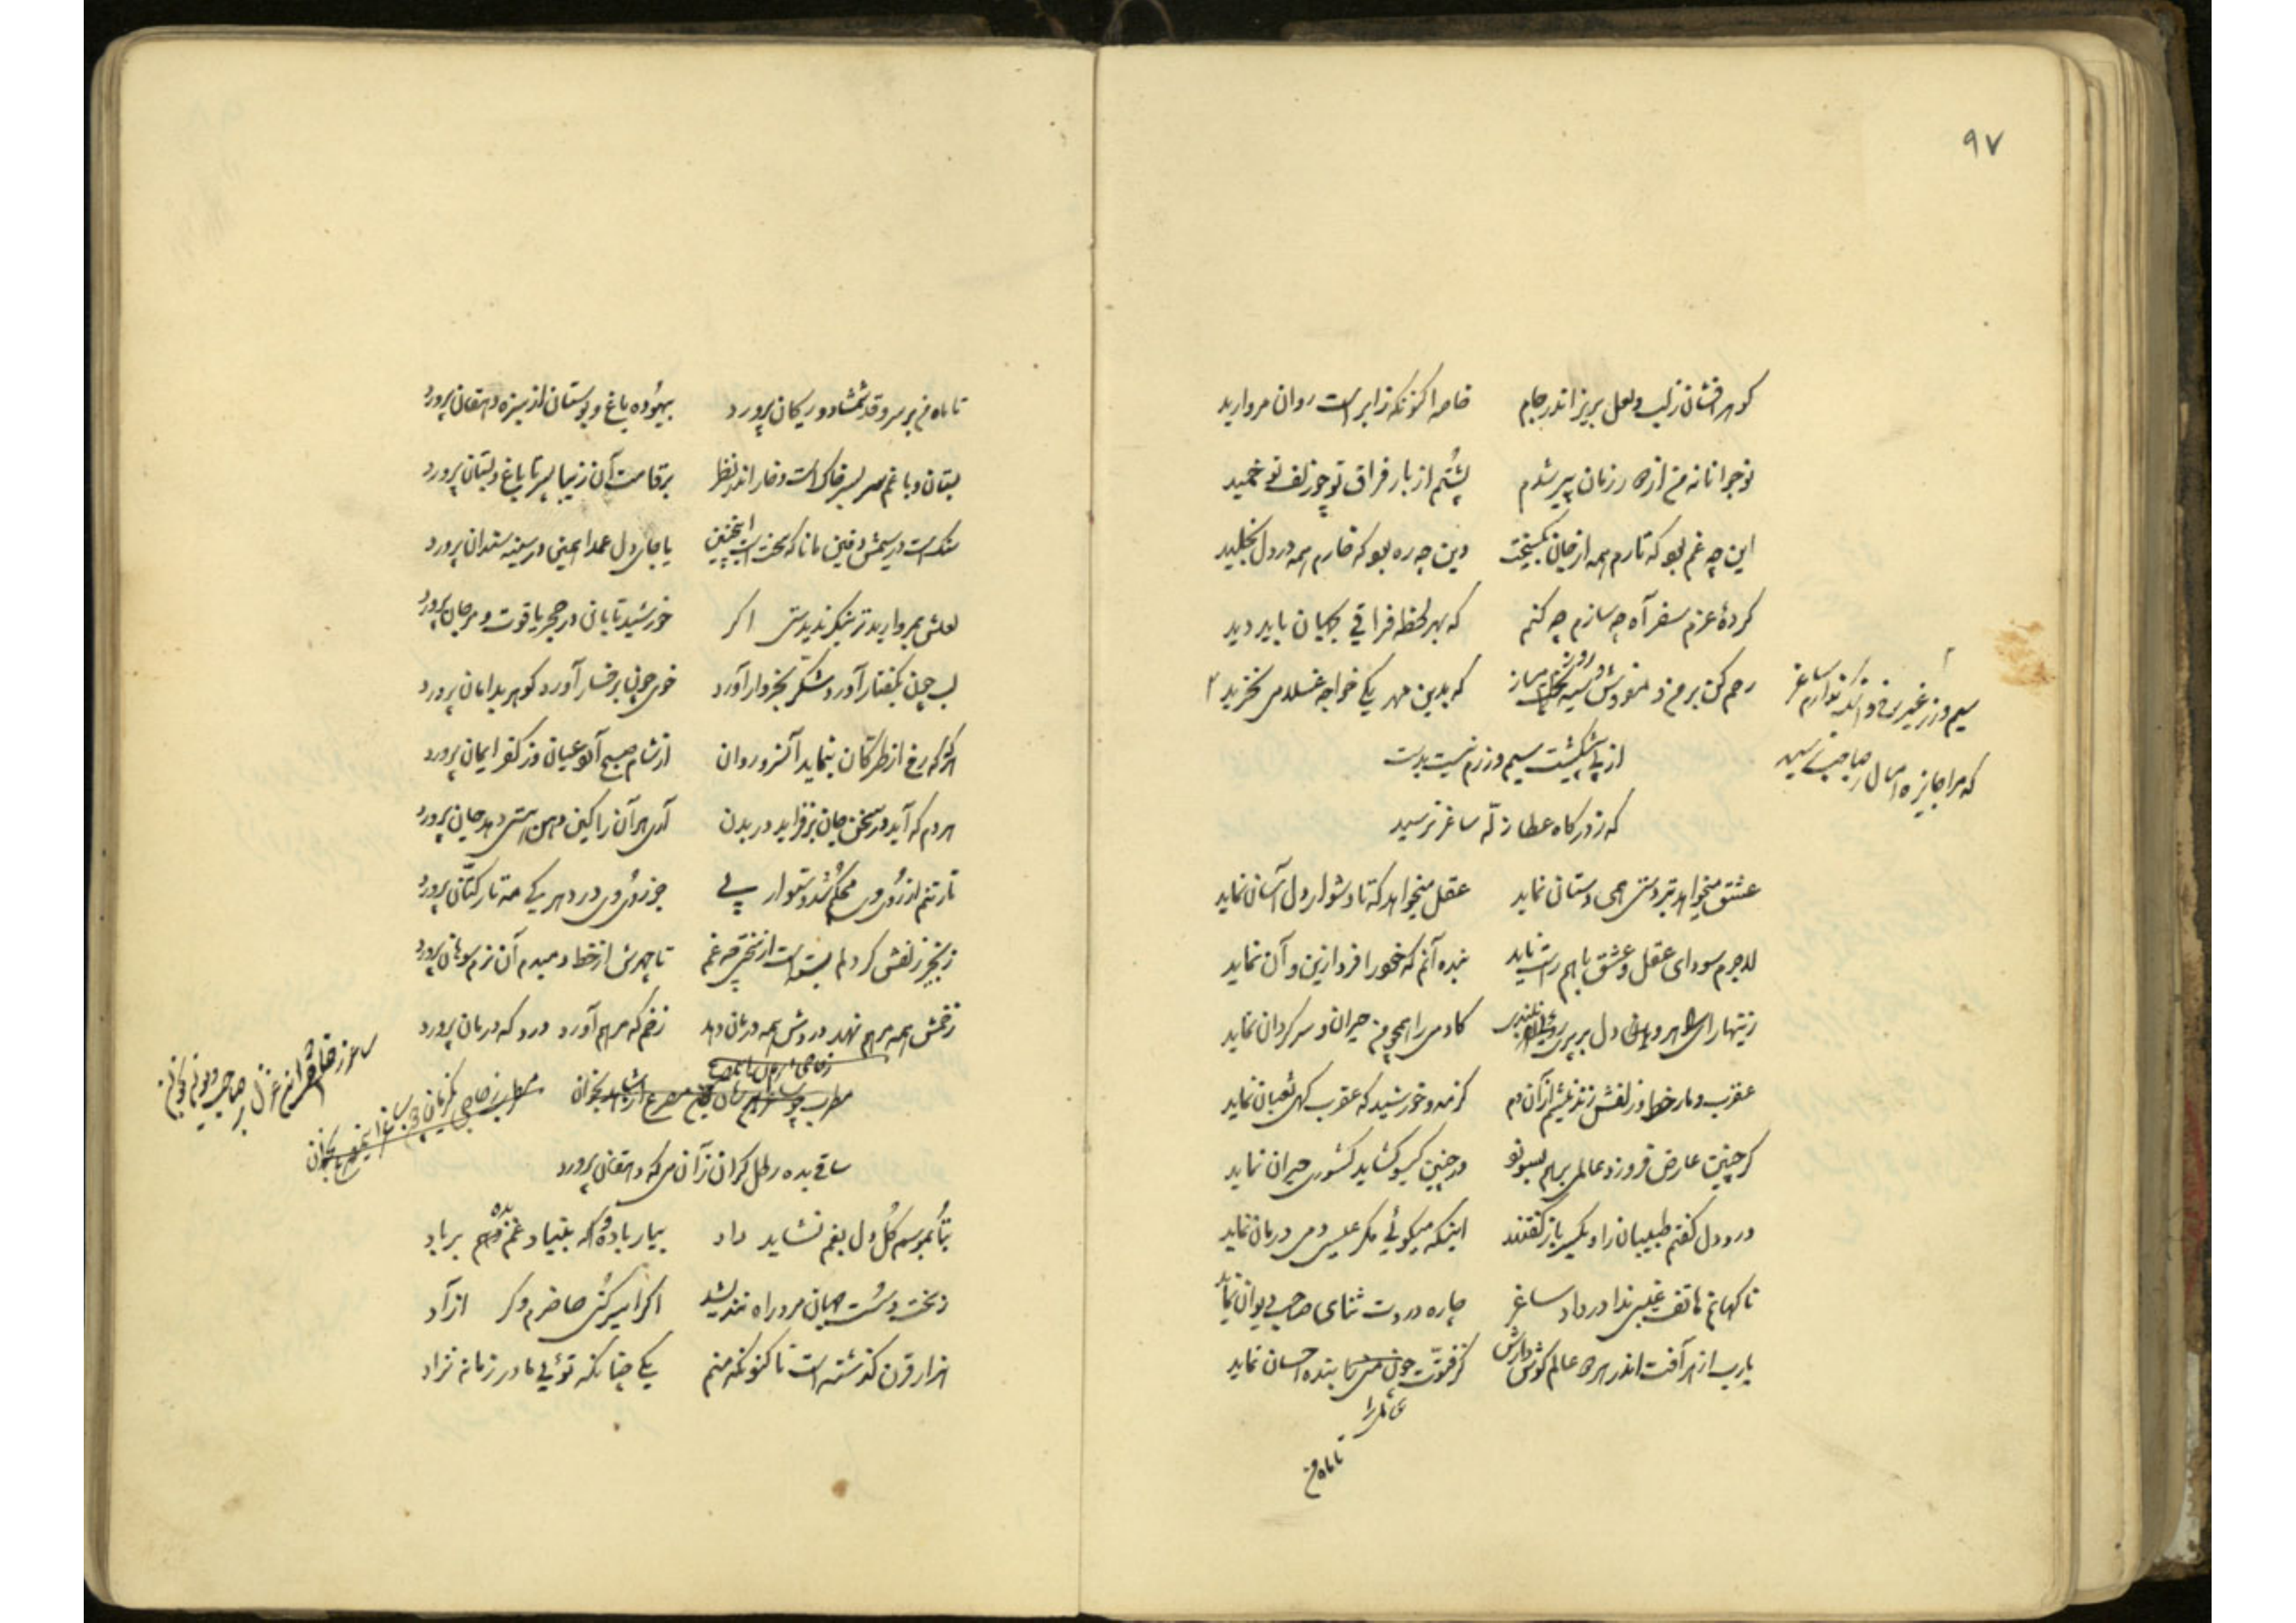 ۹۷
گوهر افشان ز لب و لعل بریز اندر جام خاصه اکنونکه ز ابر است روان مروارید
نوجوانا نه من از دور زمان پیر شدم پشتم از بار فراق تو چو زلف تو خمید
این چه غم بود که تارم همه از جان بگسیخت وین چه ره بود که خارم همه در دل بخلید
کردهٔ عزم سفر آه چه سازم چه کنم که بهر لحظه فراقی بجهان باید دید
رحم کن بر من و مفروش که بدین عهد یکی خواجه غلامی نخرید
سیم و زر غیر رخ و اشک ندارم ساغر
که مرا جایزه امسال ز صاحب نرسید
سیم و زرم نیست بدست
که ز درگاه عطا زلّه ساغر نرسید
عشق میخواهد بتردستی همی دستان نماید عقل میخواهد که تا دشوار دل آسان نماید
لاجرم سودای عقل و عشق با هم راست ناید بنده آنم که خود را فرد ازین و آن نماید
زینهار ای دل بر پری کادمی را همچو من حیران و سرگردان نماید
عقرب و مار خط و زلفش زند نیشم از آن دم کز مه و خورشید که عقرب گهی ثعبان نماید
گر چنین عارض فروزد عالمی برهم بسوزد ور چنین گیسو گشاید کشوری حیران نماید
درد دل گفتم طبیبان را و یکسر باز گفتند اینکه میگوئی مگر عیسی دمی درمان نماید
ناگهانم هاتف غیبی ندا در داد ساغر چاره دردت ثنای صاحب دیوان نماید
یارب از هر آفت اندر هر دو عالم گوش دارش کز فتوّت چون منی را بنده احسان نماید
تا ماه من
تا ماه من بر سرو قد شمشاد و ریحان پرورد بیهوده باغ و بوستان از سبزه دهقان پرورد
بستان و باغم سر بسر خاک است و خار اندر نظر بر قامت آن زیبا پسر تا باغ و بستان پرورد
سنگست در سیمش دفین مانا که سخت است اینچنین یا جای دل عمدا همین در سینه سندان پرورد
لعلش بمروارید تر بنگر ندیدستی اگر خورشید تابانی در حجر یاقوت و مرجان پرورد
لب چون بگفتار آورد شکّر بخروار آورد خوی چون برخسار آورد گوهر بدامان پرورد
هر گه که رخ از طرّگان بنماید آن سرو روان از شام صبح آرد عیان وز کفر ایمان پرورد
هر دم که آید در سخن جان برفزاید در بدن آری هر آن را کاین دهن هستی دهد جان پرورد
تار تنم از روی وی محکم شد و ستوار پی جز روی وی در دهر کی مه تار کتّان پرورد
زنجیر زلفش گر دلم بستست از سختی چه غم تا چهرش از خط دمبدم آن نرم سوهان پرورد
زخمش همه مرهم نهد دردش همه درمان دهد زخم که مرهم آورد درد که درمان پرورد
ساقی بده رطل گران زآن می که دهقان پرورد
بتا بموسم گل دل بغم نشاید داد بیار باده که بنیاد غم دهیم بر باد
ز سخت و سست جهان مرد راه نندیشد اگر اسیر کنی حاضرم وگر ازاد
هزار قرن گذشته است تا کنونکه منم یکی چنانکه توئی مادر زمانه نزاد